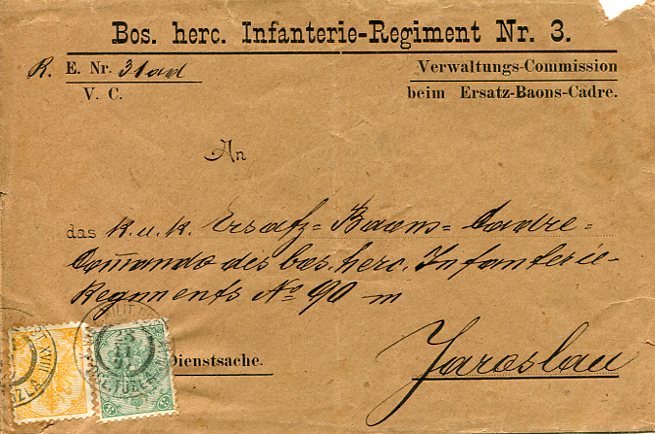 Bos. herc. Infanterie-Regiment Nr. 3.
R. E. Nr. 31 ad
V. C.
Verwaltungs-Commission
beim Ersatz-Baons-Cadre.
An
das k. u. k. Ersatz-Baons-Cadre-
Com̄ando des bos. herc. Infanterie-
Regiments No 90 in
Jaroslau
Dienstsache.